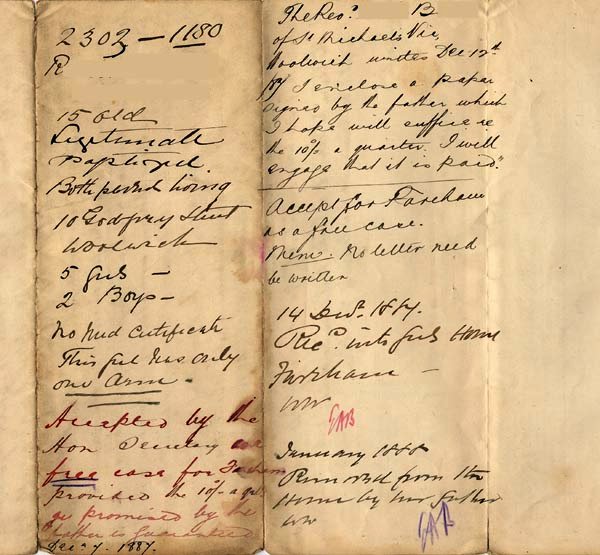 2302 – 1180
R
15 old
Legitimate
Baptized.
Both parents living
10 Godfrey Street
Woolwich
5 Girls –
2 Boys –
No Med Certificate
This girl has only
one Arm.
Accepted by the
Hon Secretary as a
free case for Fareham
provided the 10/- a qr
as promised by the
father is guaranteed
Decr 7. 1887.
The Revd B
of St Michaels Vic
Woolwich writes Dec 12th
I enclose a paper
signed by the father which
I hope will suffice re
the 10/- a quarter. I will
engage that it is paid."
Accept for Fareham
as a free case.
Mem. No letter need
be written
14 Decr. 1887.
Recd. into Girls Home
Fareham –
WW
EAB
January 1888
Removed from the
Home by her father
WW
EAB